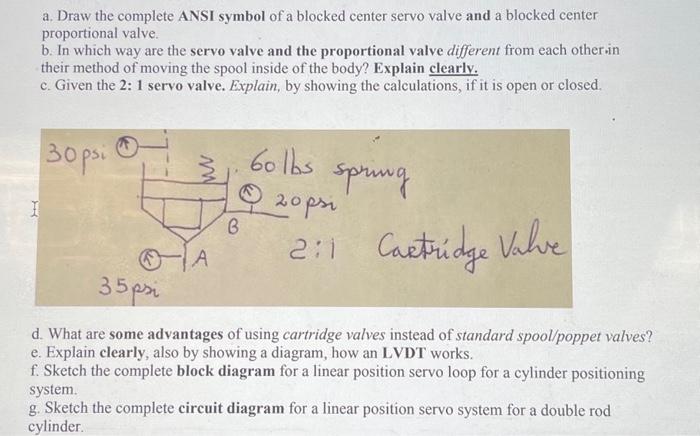 a. Draw the complete ANSI symbol of a blocked center servo valve and a blocked center
proportional valve.
b. In which way are the servo valve and the proportional valve different from each other in
their method of moving the spool inside of the body? Explain clearly.
c. Given the 2: 1 servo valve. Explain, by showing the calculations, if it is open or closed.
30 psi
60 lbs spring
20 psi
B
A
2:1 Cartridge Valve
35 psi
d. What are some advantages of using cartridge valves instead of standard spool/poppet valves?
e. Explain clearly, also by showing a diagram, how an LVDT works.
f. Sketch the complete block diagram for a linear position servo loop for a cylinder positioning
system.
g. Sketch the complete circuit diagram for a linear position servo system for a double rod
cylinder.